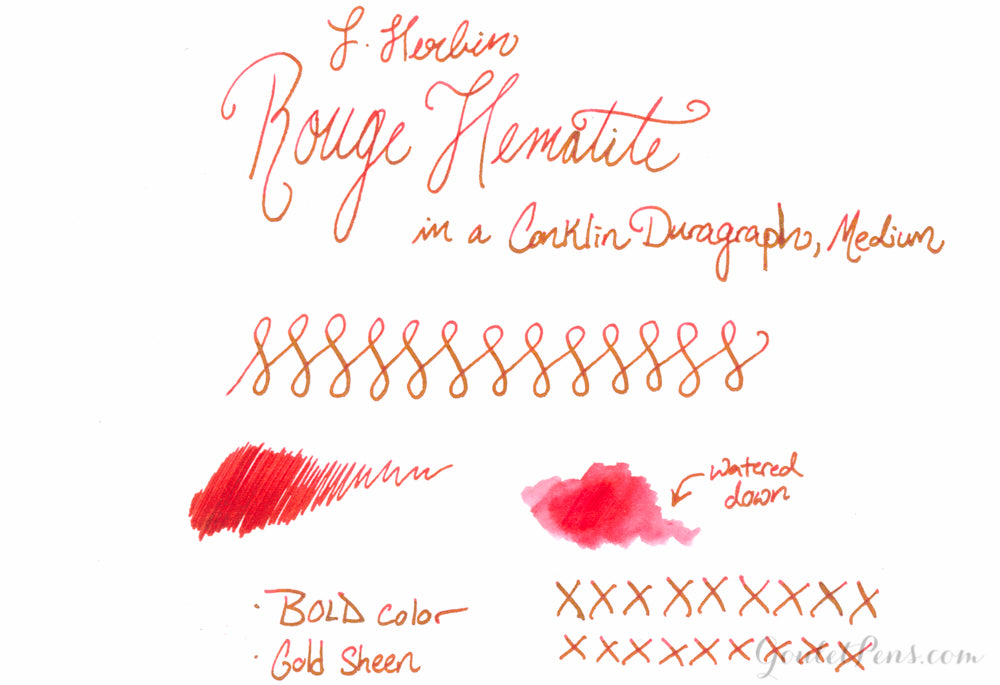 J. Herbin
Rouge Hematite
in a Conklin Duragraph, Medium
watered
down
· BOLD color
· Gold Sheen
X X X X X X X X X
X X X X X X X X X
GouletPens.com